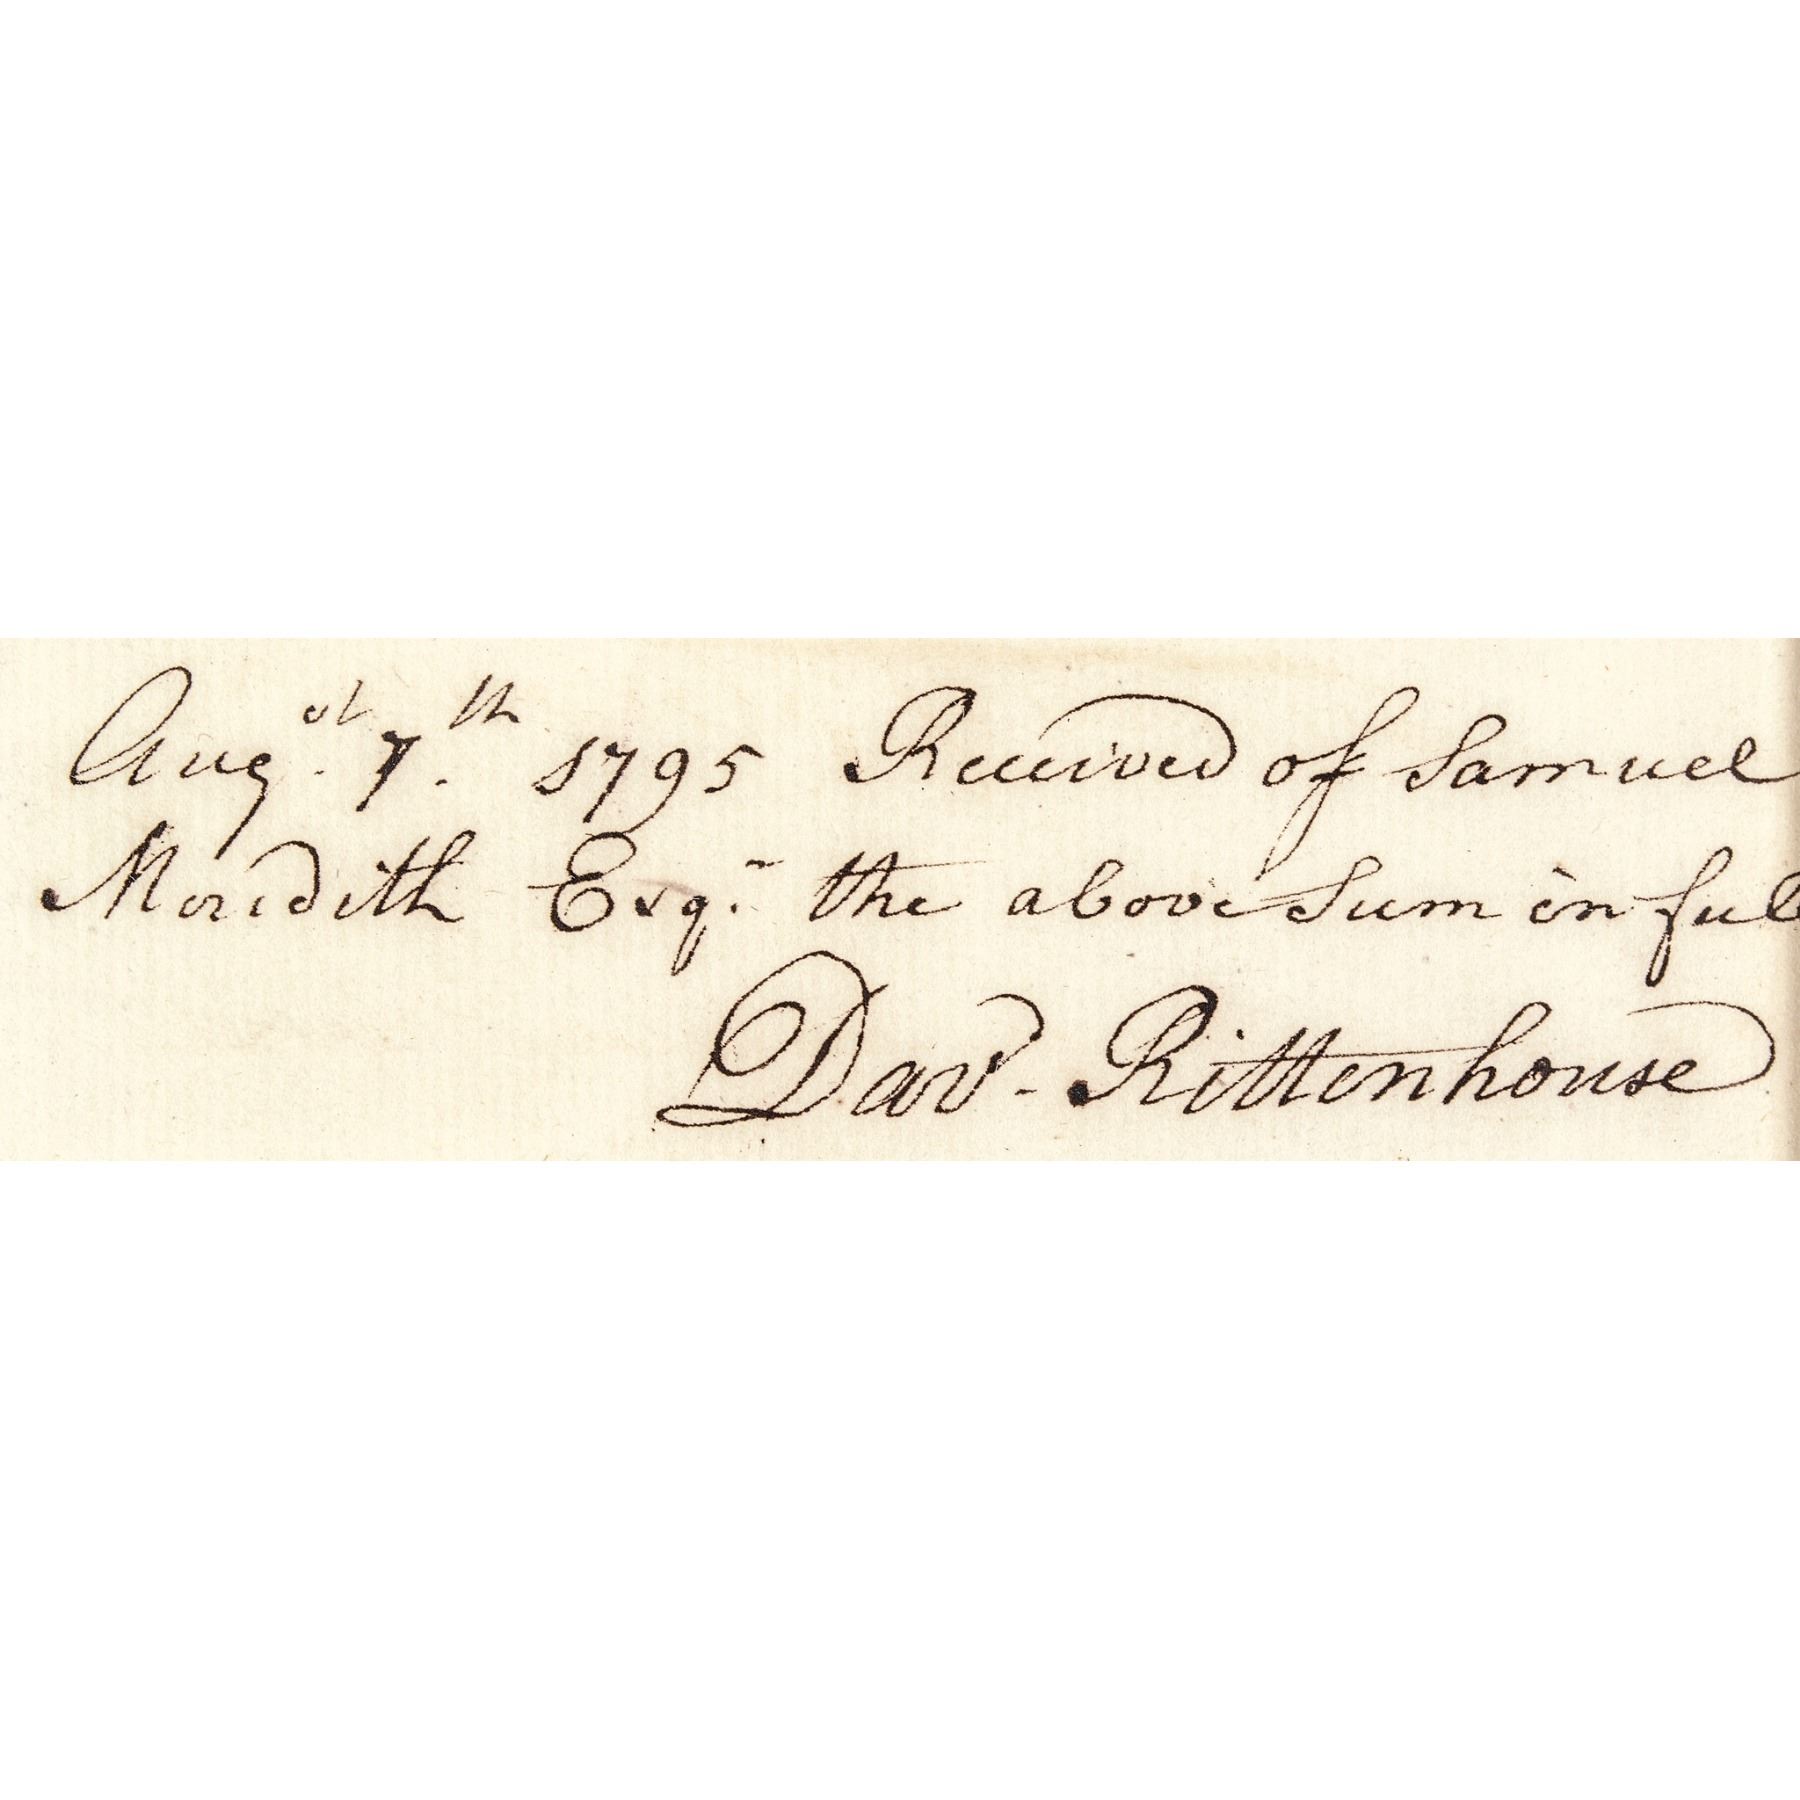 Augst. 7th. 1795 Received of Samuel
Meridith Esqr. the above Sum in full
Davd. Rittenhouse